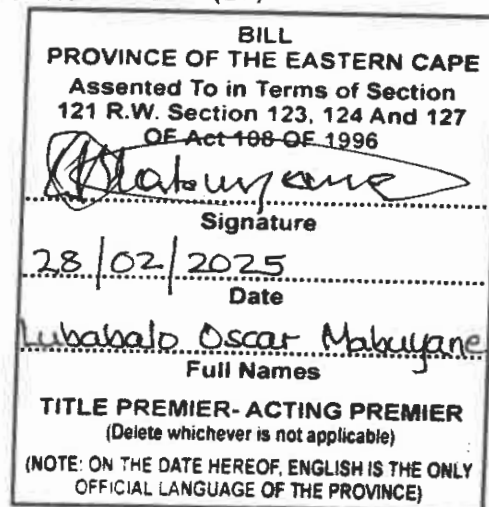 BILL
PROVINCE OF THE EASTERN CAPE
Assented To in Terms of Section
121 R.W. Section 123, 124 And 127
OF Act 108 OF 1996
Mabuyane
Signature
28/02/2025
Date
Lubabalo Oscar Mabuyane
Full Names
TITLE PREMIER- ACTING PREMIER
(Delete whichever is not applicable)
(NOTE: ON THE DATE HEREOF, ENGLISH IS THE ONLY
OFFICIAL LANGUAGE OF THE PROVINCE)